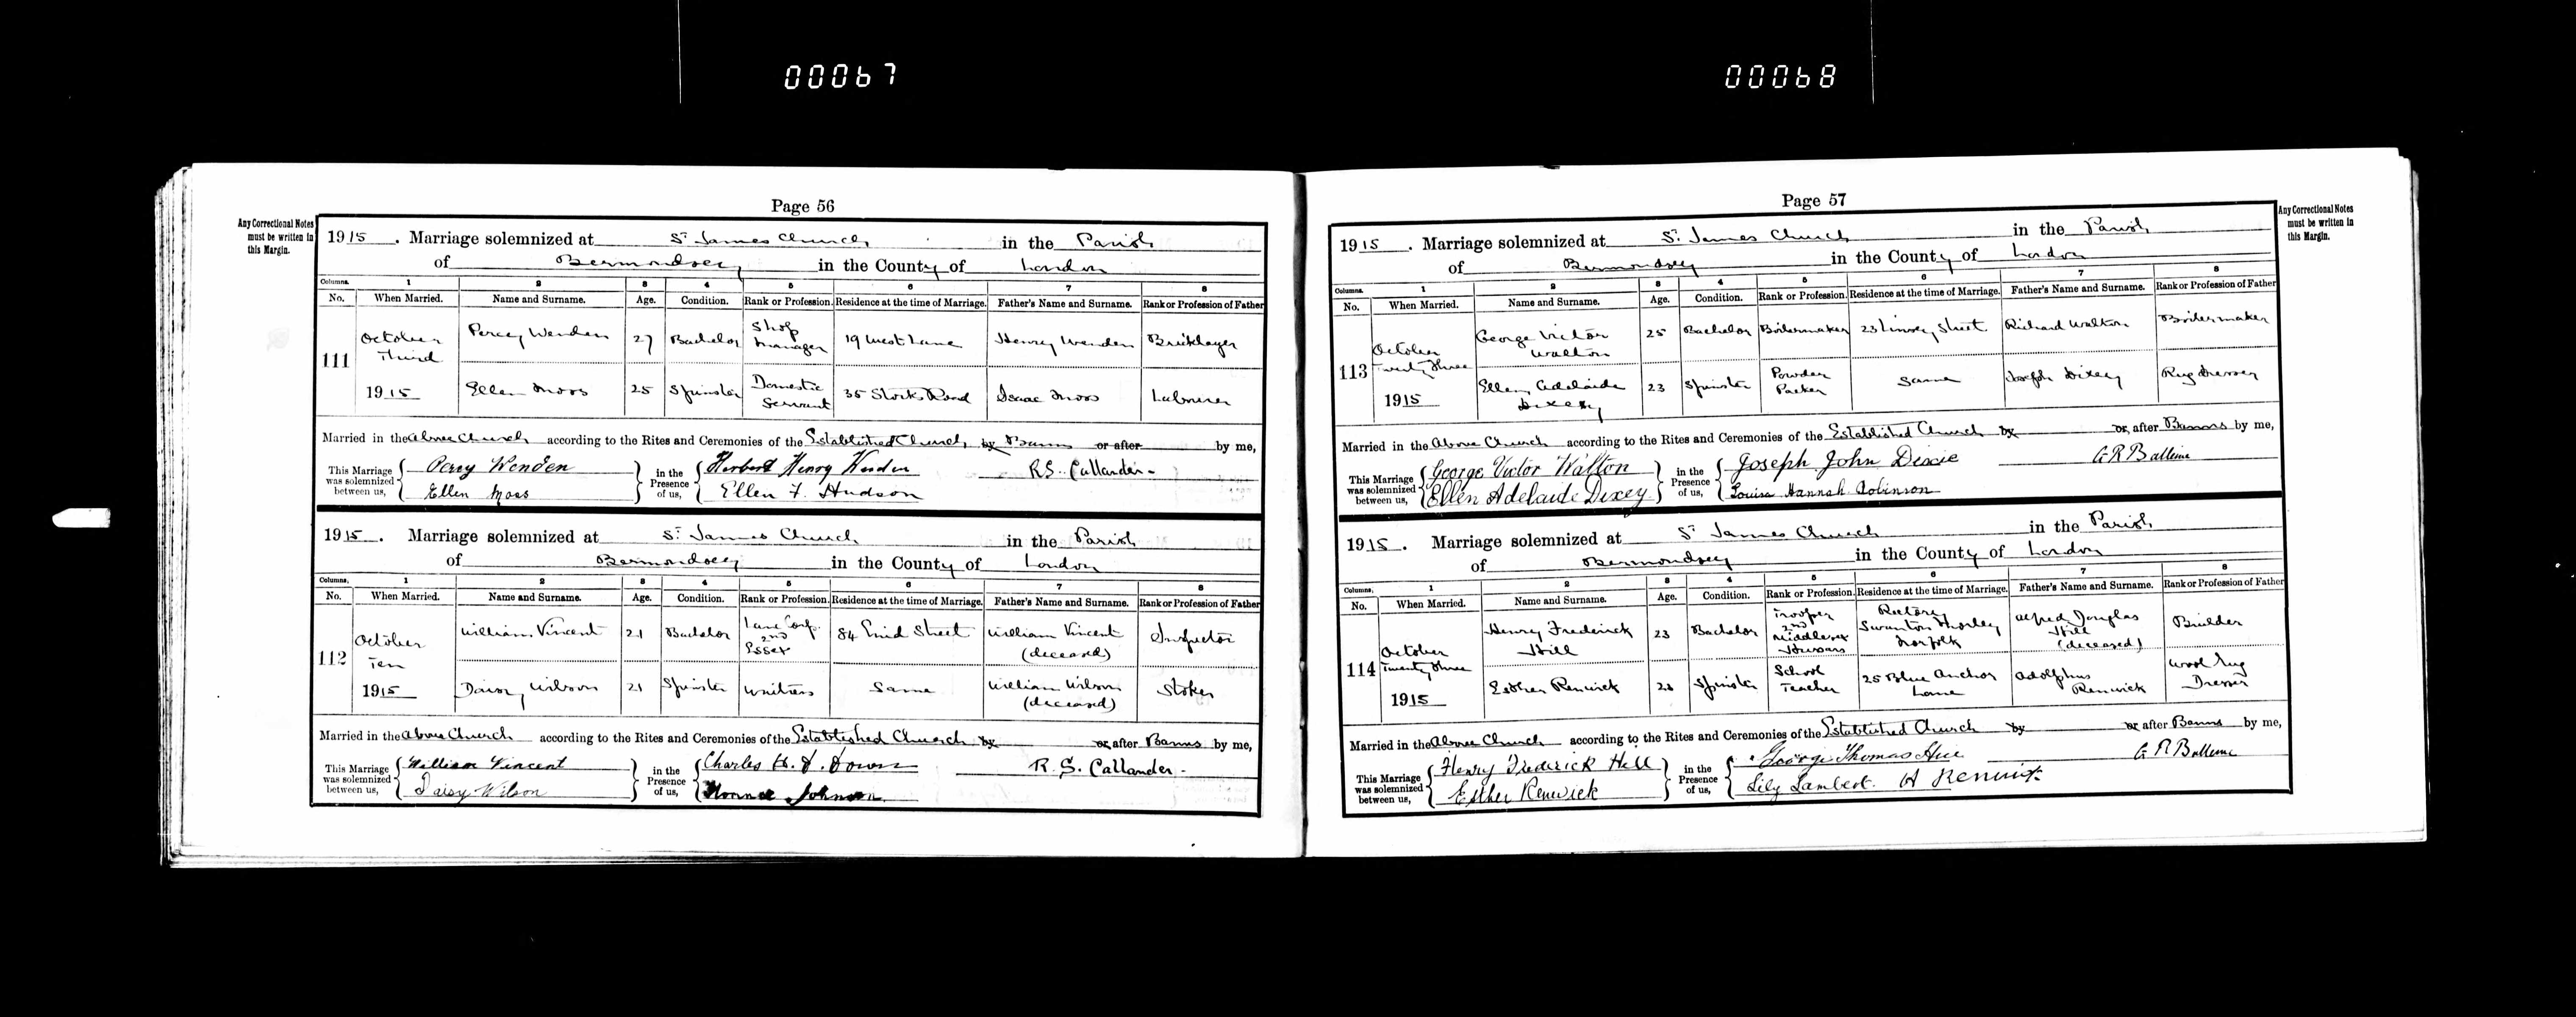 00067
00068
Page 56
Any Correctional Notes
must be written in
this Margin.
1915. Marriage solemnized at St James Church in the Parish
of Bermondsey in the County of London
Columns. 1 2 3 4 5 6 7 8
No. When Married. Name and Surname. Age. Condition. Rank or Profession. Residence at the time of Marriage. Father's Name and Surname. Rank or Profession of Father
111 October Third 1915
Percy Wenden 27 Bachelor Shop Manager 19 West Lane Henry Wenden Bricklayer
Ellen Moss 25 Spinster Domestic Servant 35 Storks Road Isaac Moss Labourer
Married in the above Church according to the Rites and Ceremonies of the Established Church, by Banns or after by me,
This Marriage was solemnized between us, Percy Wenden Ellen Moss
in the Presence of us, Herbert Henry Wenden Ellen F. Hudson
R.S. Callander
1915. Marriage solemnized at St James Church in the Parish
of Bermondsey in the County of London
Columns. 1 2 3 4 5 6 7 8
No. When Married. Name and Surname. Age. Condition. Rank or Profession. Residence at the time of Marriage. Father's Name and Surname. Rank or Profession of Father
112 October Ten 1915
William Vincent 21 Bachelor Lance Corp. 2nd Essex 84 Enid Street William Vincent (deceased) Inspector
Daisy Wilson 21 Spinster Waitress Same William Wilson (deceased) Stoker
Married in the above Church according to the Rites and Ceremonies of the Established Church by or after Banns by me,
This Marriage was solemnized between us, William Vincent Daisy Wilson
in the Presence of us, Charles H. Johnson
R. S. Callander
Page 57
Any Correctional Notes
must be written in
this Margin.
1915. Marriage solemnized at St James Church in the Parish
of Bermondsey in the County of London
Columns. 1 2 3 4 5 6 7 8
No. When Married. Name and Surname. Age. Condition. Rank or Profession. Residence at the time of Marriage. Father's Name and Surname. Rank or Profession of Father
113 October Twenty Three 1915
George Victor Walton 25 Bachelor Boilermaker 23 Linsey Street Richard Walton Boilermaker
Ellen Adelaide Dixey 23 Spinster Powder Packer Same Joseph Dixey Rug Dresser
Married in the Above Church according to the Rites and Ceremonies of the Established Church by or after Banns by me,
This Marriage was solemnized between us, George Victor Walton Ellen Adelaide Dixey
in the Presence of us, Joseph John Dixie Louisa Hannah Robinson
G R Balleine
1915. Marriage solemnized at St James Church in the Parish
of Bermondsey in the County of London
Columns. 1 2 3 4 5 6 7 8
No. When Married. Name and Surname. Age. Condition. Rank or Profession. Residence at the time of Marriage. Father's Name and Surname. Rank or Profession of Father
114 October Twenty Three 1915
Henry Frederick Hill 23 Bachelor Trooper 2nd Middlesex Hussars Rectory Swanton Morley Norfolk Alfred Douglas Hill (deceased) Builder
Esther Renwick 23 Spinster School Teacher 25 Blue Anchor Lane Adolphus Renwick Wool Rug Dresser
Married in the Above Church according to the Rites and Ceremonies of the Established Church by or after Banns by me,
This Marriage was solemnized between us, Henry Frederick Hill Esther Renwick
in the Presence of us, George Thomas Lily Lambert. A Renwick
G R Balleine